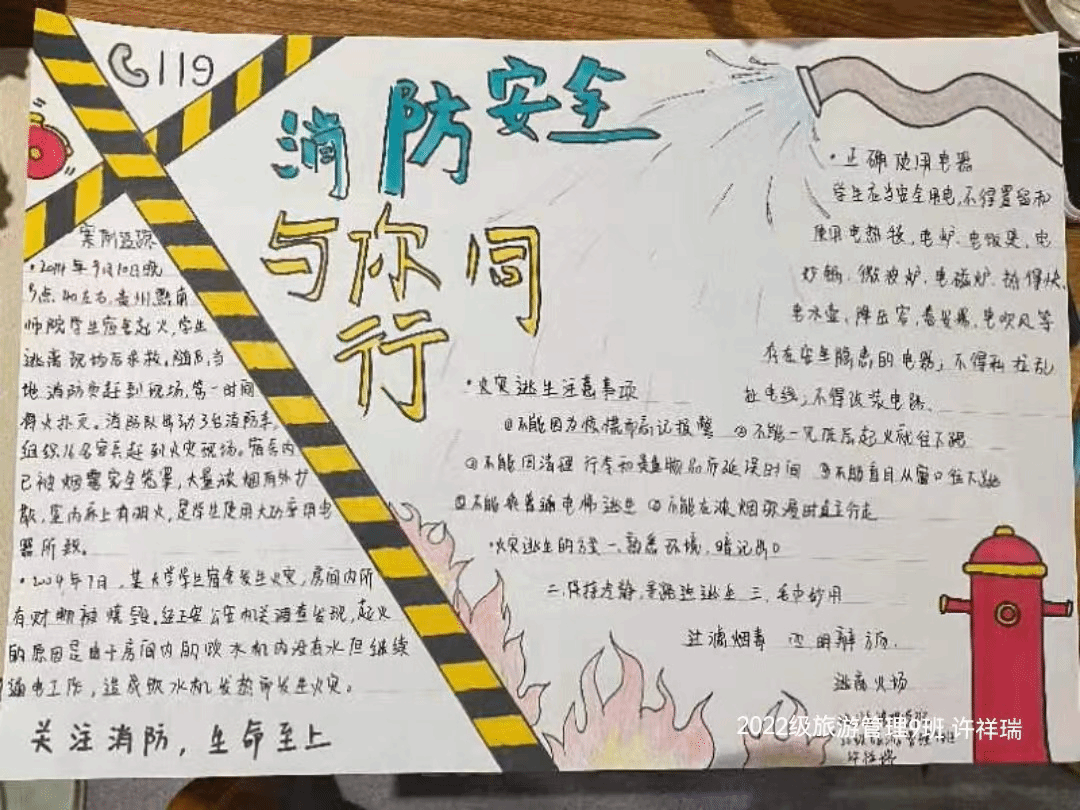 119
消防安全
与你同
行
案例追踪
·2014年9月10日晚
师院学生宿舍起火,学生
逃离现场后求救。随后,当
地消防员赶到现场,第一时间
将火扑灭。消防队出动3台消防车,
组织16名官兵赶到火灾现场。宿舍内
已被烟雾完全笼罩,大量浓烟向外扩
散,室内床上有明火,是学生使用大功率用电
器所致。
·2004年7日,某大学学生宿舍发生火灾,房间内所
有财物被烧毁。经公安机关调查发现,起火
的原因是由于房间内的饮水机内没有水但继续
通电工作,造成饮水机发热而发生火灾。
关注消防,生命至上
·正确使用电器
学生应当安全用电,不得置留和
使用电热毯,电炉、电饭煲,电
炒锅、微波炉、电磁炉、热得快、
电水壶、降压器、电吹风等
存在安全隐患的电器;不得私拉乱
扯电线;不得改装电路、
·火灾逃生注意事项
①不能因为惊慌而忘记报警 ②不能一见低层起火就往下跑
③不能因清理行李和贵重物品而延误时间 ④不能盲目从窗口往下跳
⑤不能乘普通电梯逃生 ⑥不能在浓烟弥漫时直立行走
·火灾逃生的方法 一、熟悉环境,暗记出口
二、保持镇静,
逃生 三、毛巾妙用
过滤烟毒
明辨方向.
逃离火场
2022级旅游管理9班 许祥瑞
许祥瑞